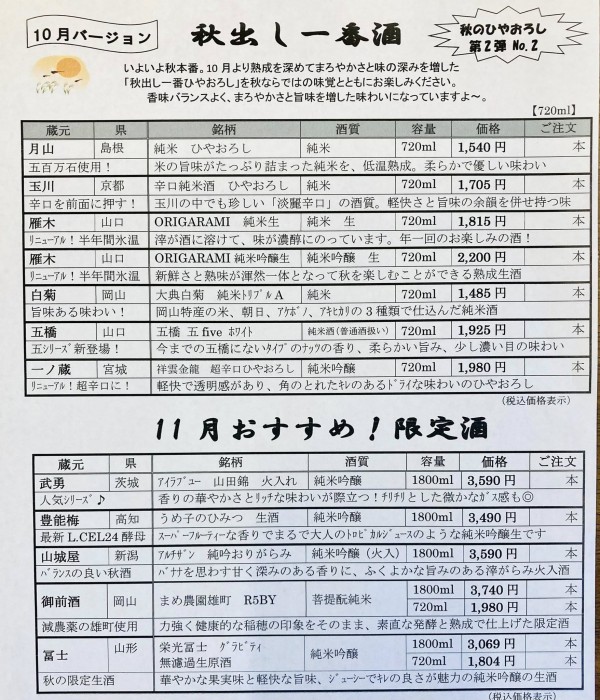 10月バージョン
秋出し一番酒
秋のひやおろし
第2弾 No.2
いよいよ秋本番。10月より熟成を深めてまろやかさと味の深みを増した
「秋出し一番ひやおろし」を秋ならではの味覚とともにお楽しみください。
香味バランスよく、まろやかさと旨味を増した味わいになっていますよ～。
【720ml】
蔵元 県 銘柄 酒質 容量 価格 ご注文
月山 島根 純米 ひやおろし 純米 720ml 1,540円 本
五百万石使用！ 米の旨味がたっぷり詰まった純米を、低温熟成。柔らかで優しい味わい
玉川 京都 辛口純米酒 ひやおろし 純米 720ml 1,705円 本
辛口を前面に押す！ 玉川の中でも珍しい「淡麗辛口」の酒質。軽快さと旨味の余韻を併せ持つ味
雁木 山口 ORIGARAMI 純米生 純米 生 720ml 1,815円 本
ﾘﾆｭｰｱﾙ！半年間氷温 滓が酒に溶けて、味が濃醇にのっています。年一回のお楽しみの酒！
雁木 山口 ORIGARAMI 純米吟醸生 純米吟醸 生 720ml 2,200円 本
ﾘﾆｭｰｱﾙ！半年間氷温 新鮮さと熟味が渾然一体となって秋を楽しむことができる熟成生酒
白菊 岡山 大典白菊 純米ﾄﾘﾌﾟﾙA 純米 720ml 1,485円 本
旨味ある味わい！ 岡山特産の米、朝日、ｱｹﾎﾞﾉ、ｱｷﾋｶﾘの3種類で仕込んだ純米酒
五橋 山口 五橋 五 five ﾎﾜｲﾄ 純米酒(普通酒扱い) 720ml 1,925円 本
五ｼﾘｰｽﾞ新登場！ 今までの五橋にないﾀｲﾌﾟのﾅｯﾂの香り、柔らかい旨み、少し濃い目の味わい
一ノ蔵 宮城 祥雲金龍 超辛口ひやおろし 純米吟醸 720ml 1,980円 本
ﾘﾆｭｰｱﾙ！超辛口に！ 軽快で透明感があり、角のとれたｷﾚのあるﾄﾞﾗｲな味わいのひやおろし
(税込価格表示)
11月おすすめ！限定酒
蔵元 県 銘柄 酒質 容量 価格 ご注文
武勇 茨城 ｱｲﾗﾌﾞﾕｰ 山田錦 火入れ 純米吟醸 1800ml 3,590円 本
人気ｼﾘｰｽﾞ♪ 香りの華やかさとﾘｯﾁな味わいが際立つ！ﾁﾘﾁﾘとした微かなｶﾞｽ感も◎
豊能梅 高知 うめ子のひみつ 生酒 純米吟醸 1800ml 3,490円 本
最新 L.CEL24 酵母 ｽｰﾊﾟｰﾌﾙｰﾃｨｰな香りでまるで大人のﾄﾛﾋﾟｶﾙｼﾞｭｰｽのような純米吟醸生です
山城屋 新潟 ｱﾙﾁｻﾞﾝ 純吟おりがらみ 純米吟醸（火入） 1800ml 3,590円 本
ﾊﾞﾗﾝｽの良い秋酒 ﾊﾞﾅﾅを思わす甘く深みのある香りに、ふくよかな旨みのある滓がらみ火入酒
御前酒 岡山 まめ農園雄町 R5BY 菩提酛純米 1800ml 3,740円 本
720ml 1,980円
減農薬の雄町使用 力強く健康的な稲穂の印象をそのまま、素直な発酵と熟成で仕上げた限定酒
冨士 山形 栄光冨士 ｸﾞﾗﾋﾞﾃｨ 純米吟醸 1800ml 3,069円 本
無濾過生原酒 720ml 1,804円
秋の限定生酒 華やかな果実味と軽快な旨味、ｼﾞｭｰｼｰでｷﾚの良さが魅力の純米吟醸の生酒
(税込価格表示)